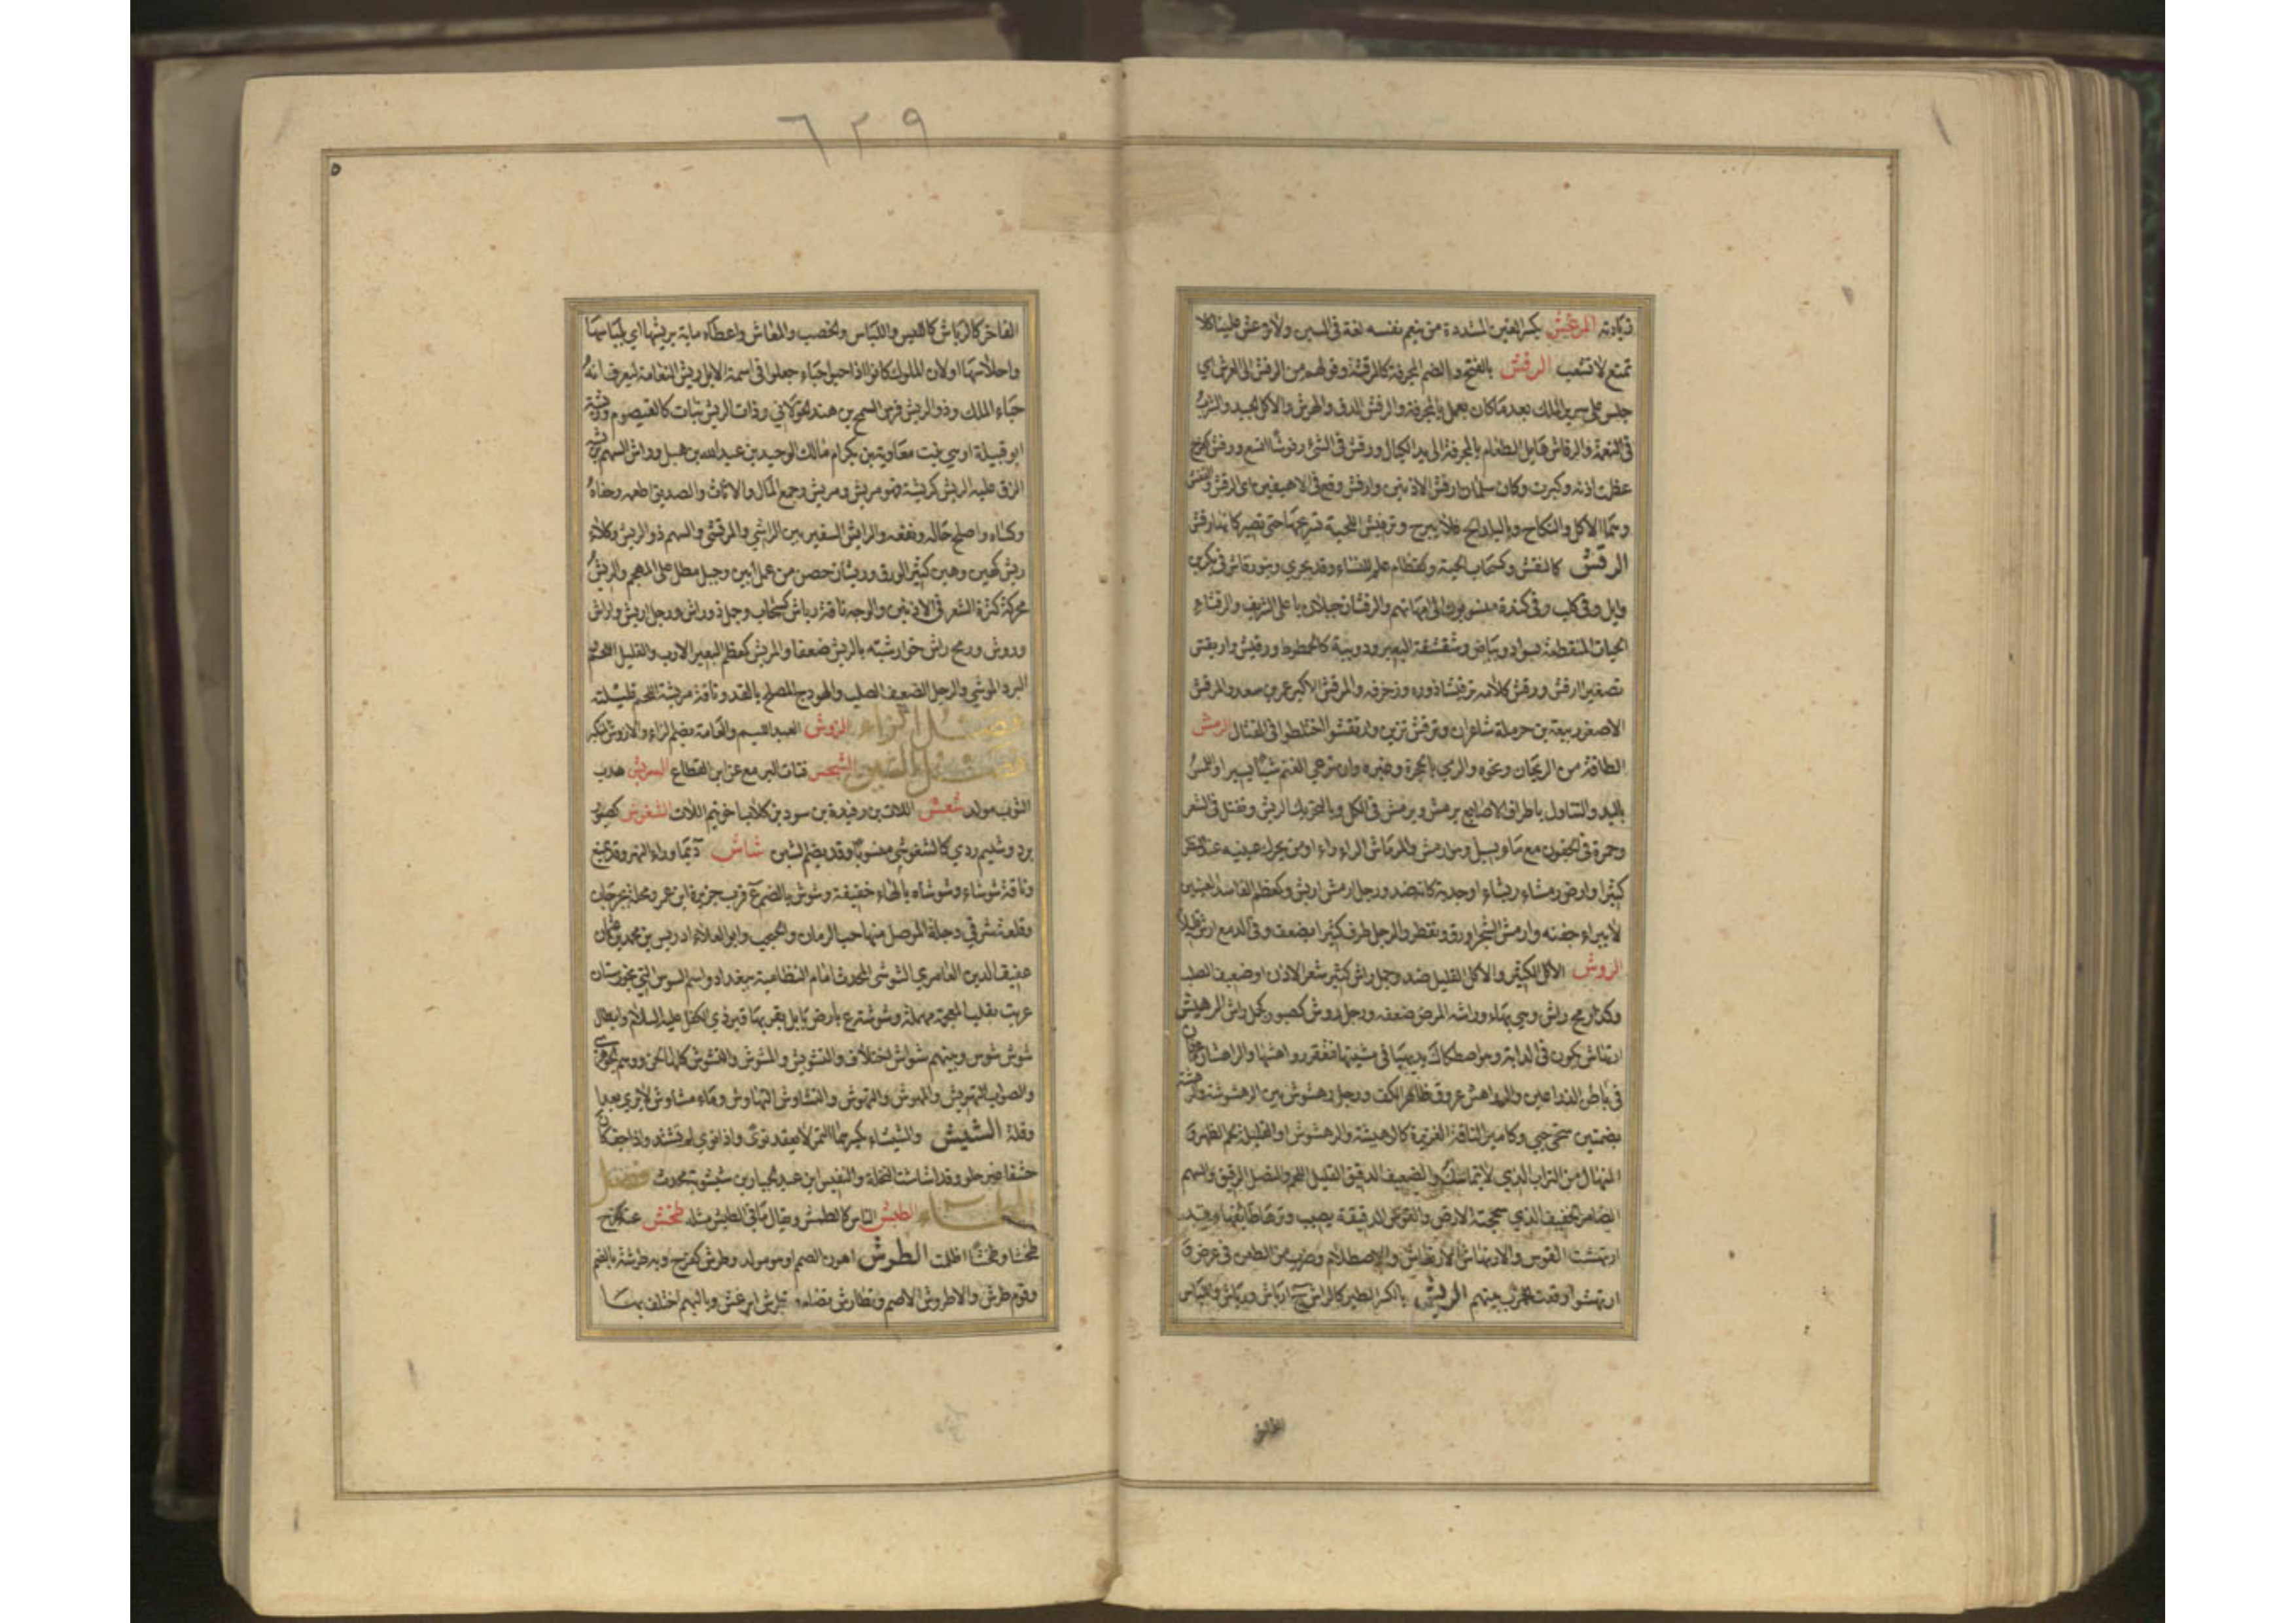 ٦٢٩
زيادته المرغش بكسر الغين المشددة من ينعم نفسه لغة في السين ولا ترغش علينا لا
تمتع لا تشعب الرفش بالفتح والضم المجرفة كالمرفشة وقولهم من الرفش الى العرش اي
جلس على سرير الملك بعد ما كان يعمل بالمجرفة والرفش الدق والهرش والاكل الجيد والشرب
في النعمة والرفاش هايل الطعام بالمجرفة الى يد الكيال ورفش في الشئ رفوشا اتسع ورفش كفرح
عظمت اذنه وكبرت وكان سلمان ارفش الاذنين وارفش وقع في الاهيغين اي الرفش والقفش
وهما الاكل والنكاح وبالبلد الح فلا يبرح وترفيش اللحية تسريحها حتى تصير كانها رفش
الرقش كالنقش وكسحاب الحية وكقطام علم للنساء وقد يجري وبنو رقاش في بكر بن
وايل وفي كلب وفي كندة منسوبون الى امهاتهم والرقشان جبلان باعلى الشريف والرقشاء
الحيات المنقطة بسواد وبياض وشقشقة البعير ودويبة كالخطوط ورقيش واريقش
تصغير ارقش ورقش كلامه ترقيشا زوره وزخرفه والمرقش الاكبر عمرو بن سعد والمرقش
الاصغر ربيعة بن حرملة شاعران وترقش تزين وارتقشوا اختلطوا في القتال الرمش
الطاقة من الريحان ونحوه والرمي بالحجرة وغيره وان ترعى الغنم شيئا يسيرا واللمس
باليد والتناول باطراف الاصابع يرمش ويرمش في الكل وبالتحريك الريش وتفتل في الشعر
وحمرة في الجفون مع ماء يسيل وهو ارمش والمرماش الراراء او من يحرك عينيه عند النظر
كثيرا وارض رمشاء ربشاء او جدبة كانه ضد ورجل ارمش اربش وكعظم الفاسد العينين
لا يبرا جفنه وارمش الشجر اورق وتفطر والرجل طرف كثيرا بضعف وفي الدمع ارش قليلا
الروش الاكل الكثير والاكل القليل ضد وجمل راش كثير شعر الاذن او ضعيف الصلب
وكذا رمح راش وهي بهاء وراشه المرض ضعفه ورجل رؤوش كصبور كجمل راش الرهيش
ارتهاش يكون في الدابة وهو اصطكاك يديها في مشيتها فتعقر رواهشها والراهشان عرقان
في باطن الذراعين والرواهش عروق ظاهر الكف ورجل رهشوش بين الرهشوشة والرهشة
بضمتين سخي حيي وكامير الناقة الغزيرة كالرهيشة والرهشوش او القليلة لحم الظهر و
المنهال من التراب الذي لا يتماسك والضعيف الدقيق القليل اللحم والنصل الرقيق والسهم
الضامر الخفيف الذي سحجته الارض والقوس الدقيقة يصيب وترها طائفها وقد
ارتهشت القوس والارتهاش الارتعاش والاصطلام وضرب من الطعن في عرض و
ارتهشوا وقعت الحرب بينهم الريش بالكسر للطير كالراش ج ارياش ورياش واللباس
الفاخر كالرياش كاللبس واللباس والخصب والمعاش واعطاه ماية بريشها اي بلباسها
واحلاسها او لان الملوك كانوا اذا حبوا حباء جعلوا في اسمة الابل ريش النعامة ليعرف انه
حباء الملك وذو الريش فرس السمح بن هند الخولاني وذات الريش نبات كالقيصوم وريشة
ابو قبيلة او هي بنت معاوية بن بكر ام مالك الوحيد بن عبد الله بن هبل وراش السهم يريشه
الزق عليه الريش كريشه فهو مريش ومريش وجمع المال والاثاث والصديق اطعمه وسقاه
وكساه واصلح حاله ونفعه والرايش السفير بين الراشي والمرتشي والسهم ذو الريش وكلاء
ريش كهين وهين كثير الورق وريشان حصن من عمل ابين وجبل مطل على المهجم والريش
محركة كثرة الشعر في الاذنين والوجه ناقة رياش كسحاب وجمل ذو راش ورجل اريش واراش
وروش ورمح راش خوار شبه بالريش ضعفا والمريش كعظم البعير الازب والقليل اللحم
البرد الموشي والرجل الضعيف الصلب والهودج المصلح بالقد وناقة مريشة اللحم قليلته
فصل الزاء الزوش العبد اللئيم والعامة بضم الزاء والازوش المتكبر
فصل الشين الشبحش فتات البر مع عن ابن القطاع الشربش هدب
الثوب مولد شعش اللات بن رفيدة بن سود بن كلاب اخو تيم اللات الشغوش كصبور
برد وشليم ردي كالشغوشي منسوبا وقد يضم الشين شاش د بما وراء النهر وقد يمنع
وناقة شوشاء وشوشاه بالهاء خفيفة وشوش بالضم ع قرب جزيرة ابن عمر ومحلة بجرجان
وقلعة شرقي دجلة الموصل منها حب الرمان والحبيب وابو العلاء ادريس بن محمد بن عثمان
عفيف الدين العامري الشوشي المحدث امام النظامية ببغداد واسم السوس التي بخوزستان
عربت بقلب المعجمة مهملة وشوشة ع بارض بابل بقربها قبر ذي الكفل عليه السلام وابطال
شوش شوس وبينهم شواش اختلاف والتشويش والمشوش والتشوش كلها لحن ووهم الجوهري
والصواب التهويش والمهوش والتهوش والتشاوش التهاوش وماء مشاوش لا يرى بعدا
وقلة الشيش والشيشاء بكسرهما التمر لا يعقد نوى واذا نوي لم يشتد واذا جف كان
حشفا غير حلو وقد اشاشت النخلة والنفيس ابن عبد الجبار بن شيشويه محدث فصل
الطاء الطبش الناس كالطمش ويقال ما في الطبش مثله طخش عينه كفرح
طخشا وطخشا اظلمت الطرش اهون الصمم او هو مولد وطرش كفرح وبه طرشة بالضم
وقوم طرش والاطروش الاصم وتطارش تصامم تطرش ابرغش وبالبهم اختلف بها